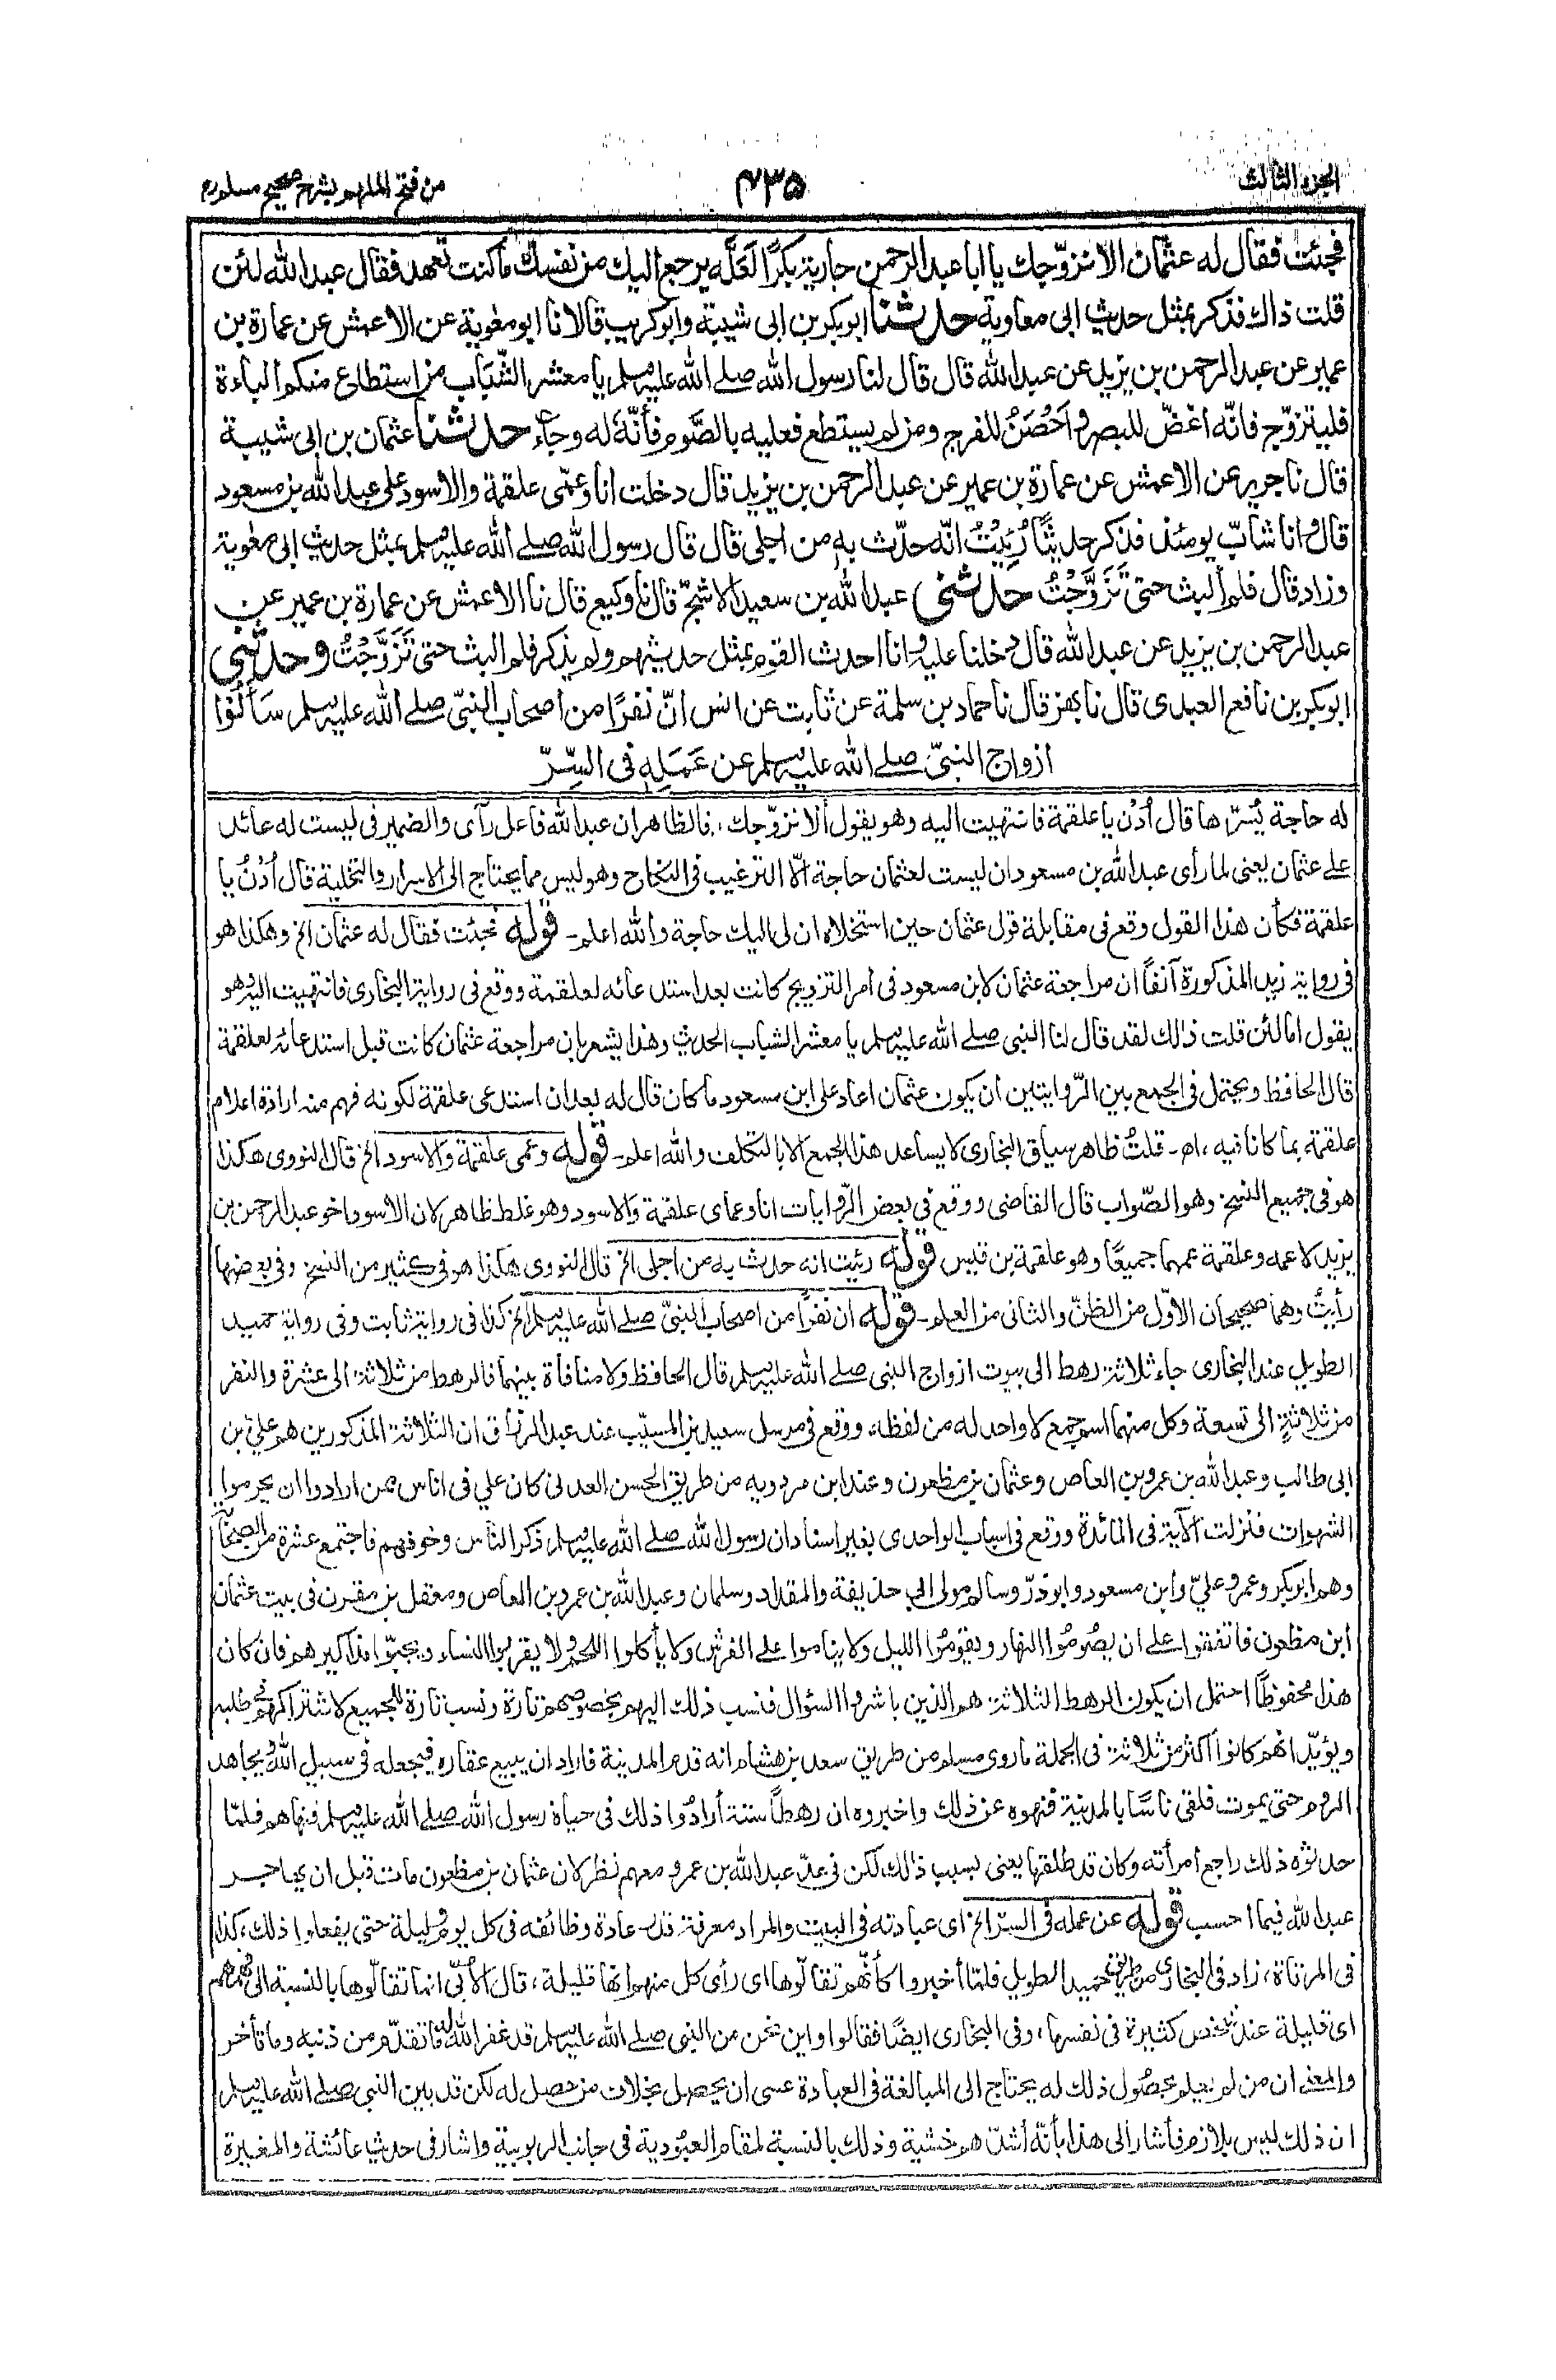 الجزء الثالث
٤٣٥
من فتح الملهم بشرح صحيح مسلم
فجئت فقال له عثمان الا نزوّجك يا ابا عبد الرحمن جارية بكرًا لَعَلَّه يرجع اليك من نفسك ما كنت تعهد فقال عبد الله لئن
قلت ذاك فذكر بمثل حديث ابى معاوية حدثنا ابوبكر بن ابى شيبة وابو كريب قالا نا ابو مغوية عن الاعمش عن عمارة بن
عمير عن عبد الرحمن بن يزيد عن عبد الله قال قال لنا رسول الله صلے الله عليه وسلم يا معشر الشّباب من استطاع منكم الباءة
فليتزوّج فانّه اغضّ للبصر واَحْصَنُ للفرج ومن لم يستطع فعليه بالصَّوم فأنّهٗ له وجاء حدثنا عثمان بن ابى شيبة
قال نا جرير عن الاعمش عن عمارة بن عمير عن عبد الرحمن بن يزيد قال دخلت انا وعمّى علقمة والاسود على عبد الله بن مسعود
قال وانا شابّ يومئذ فذكر حديثًا رُئِيْتُ انّه حدّث به من اجلى قال قال رسول الله صلے الله عليه وسلم بمثل حديث ابى مغوية
وزاد قال فلم ألبث حتى تَزَوَّجْتُ حدثنى عبد الله بن سعيد الاشجّ قال نا وكيع قال نا الاعمش عن عمارة بن عمير عن
عبد الرحمن بن يزيد عن عبد الله قال دخلنا عليه وانا احدث القوم بمثل حديثهم ولم يذكر فلم البث حتى تَزَوَّجْتُ وحدثنى
ابوبكر بن نافع العبدى قال نا بهز قال نا حماد بن سلمة عن ثابت عن انس انّ نفرًا من أصحاب النبىّ صلے الله عليه وسلم سَأَلُوْا
ازواج النبىّ صلے الله عليه وسلم عن عَمَلِهٖ فى السِّرّ
له حاجة يُسرّها قال اُدْنُ يا علقمة فانتهيت اليه وهو يقول ألا نزوّجك، فالظاهر ان عبد الله فاعل رأى والضمير فى ليست له عائد
علے عثمان يعنى لما رأى عبد الله بن مسعود ان ليست لعثمان حاجة الّا الترغيب فى النكاح وهو ليس مما يحتاج الى الاسرار والتخلية قال اُدْنُ يا
علقمة فكأن هذا القول وقع فى مقابلة قول عثمان حين استخلاه ان لى اليك حاجة والله اعلم۔ قوله فجئت فقال له عثمان الخ وهكذا هو
فى رواية زيد المذكورة آنفًا ان مراجعة عثمان لابن مسعود فى امر التزويج كانت بعد استدعائه لعلقمة ووقع فى رواية البخارى فانتهيت اليه وهو
يقول اما لئن قلت ذالك لقد قال لنا النبى صلے الله عليه وسلم يا معشر الشباب الحديث وهذا يشعر بان مراجعة عثمان كانت قبل استدعائه لعلقمة
قال الحافظ ويحتمل فى الجمع بين الرّوايتين ان يكون عثمان اعاد على ابن مسعود ما كان قال له بعد ان استدعى علقمة لكونه فهم منه ارادة اعلام
علقمة بما كانا فيه، اھ۔ قلتُ ظاهر سياق البخارى لا يساعد هذا الجمع الا بالتكلف والله اعلم۔ قوله وعمى علقمة والاسود الخ قال النووى هكذا
هو فى جميع النسخ وهو الصّواب قال القاضى ووقع فى بعض الرّوايات انا وعماى علقمة والاسود وهو غلط ظاهر لان الاسود اخو عبد الرحمن بن
يزيد لا عمه وعلقمة عمهما جميعًا وهو علقمة بن قيس قوله رئيت انه حدث به من اجلى الخ قال النووى هكذا هو فى كثير من النسخ وفى بعضها
رأيتُ وهما صحيحان الاوّل من الظنّ والثانى من العلم۔ قوله ان نفرًا من اصحاب النبىّ صلے الله عليه وسلم الخ كذا فى رواية ثابت وفى رواية حميد
الطويل عند البخارى جاء ثلاثة رهط الى بيوت ازواج النبى صلے الله عليه وسلم قال الحافظ ولا منافاة بينهما فالرهط من ثلاثة الى عشرة والنفر
من ثلاثةٍ الى تسعة وكل منهما اسم جمع لا واحد له من لفظه، ووقع فى مرسل سعيد بن المسيّب عند عبد الرزاق ان الثلاثة المذكورين هم علىّ بن
ابى طالب وعبد الله بن عمرو بن العاص وعثمان بن مظعون وعند ابن مردويه من طريق الحسن العدنى كان علي فى اناس ممن ارادوا ان يحرموا
الشهوات فنزلت الآية فى المائدة ووقع فى اسباب الواحدى بغير اسناد ان رسول الله صلے الله عليه وسلم ذكر الناس وخوفهم فاجتمع عشرة من الصحابة
وهم ابوبكر وعمر وعلىّ وابن مسعود وابو ذرّ وسالم مولى ابى حذيفة والمقداد وسلمان وعبد الله بن عمرو بن العاص ومعقل بن مقرن فى بيت عثمان
ابن مظعون فاتفقوا علے ان يصُومُوا النهار ويقومُوا الليل ولا يناموا علے الفرش ولا يأكلوا اللحم ولا يقربوا النساء ويجبّوا مذاكيرهم فان كان
هذا محفوظًا احتمل ان يكون الرهط الثلاثة هم الذين باشروا السؤال فنسب ذلك اليهم بخصوصهم تارة ونسب تارة للجميع لاشتراكهم فى طلبه
ويؤيّد انهم كانوا أكثر من ثلاثة فى الجملة ما روى مسلم من طريق سعد بن هشام انه قدم المدينة فاراد ان يبيع عقاره فيجعله فى سبيل الله ويجاهد
الروم حتى يموت فلقى ناسًا بالمدينة فنهوه عن ذلك واخبروه ان رهطًا ستة أرادُوا ذلك فى حياة رسول الله صلے الله عليه وسلم فنهاهم فلمّا
حدثوه ذلك راجع امرأته وكان قد طلقها يعنى بسبب ذالك، لكن فى عدّ عبد الله بن عمرو معهم نظر لان عثمان بن مظعون مات قبل ان يهاجر
عبد الله فيما احسب قوله عن عمله فى السرّ الخ اى عبادته فى البيت والمراد معرفة قدر عادة وظائفه فى كل يوم وليلة حتى يفعلوا ذلك، كذا
فى المرقاة، زاد فى البخارى من طريق حميد الطويل فلمّا أخبروا كأنّهم تقالّوها اى رأى كل منهم انها قليلة، قال الأبّى انما تقالّوها بالنسبة الى
اى قليلة عند كثيرة فى نفسها، وفى البخارى ايضًا فقالوا واين نحن من النبى صلے الله عليه وسلم قد غفر الله له ما تقدّم من ذنبه وما تأخر
والمعنى ان من لم يعلم بحصُول ذلك له يحتاج الى المبالغة فى العبادة عسى ان يحصل بخلاف من حصل له لكن قد بين النبى صلے الله عليه وسلم
ان ذلك ليس بلازم فأشار الى هذا بأنّه أشدّهم خشية وذلك بالنسبة لمقام العبُودية فى جانب الربوبية واشار فى حديث عائشة والمغيرة